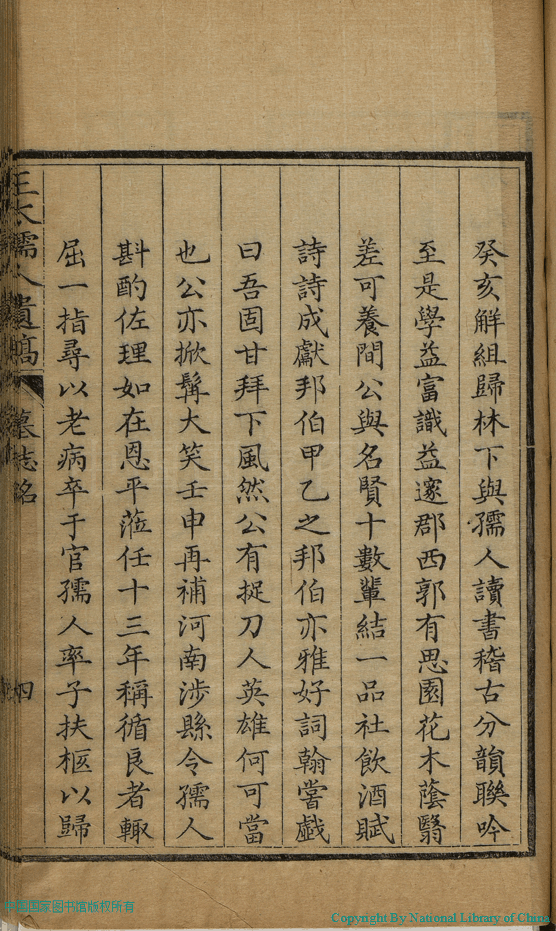 癸亥解組歸林下與孺人讀書稽古分韻聯吟
至是學益富識益邃郡西郭有思園花木蔭翳
差可養間公與名賢十數輩結一品社飲酒賦
詩詩成獻邦伯甲乙之邦伯亦雅好詞翰嘗戲
曰吾固甘拜下風然公有捉刀人英雄何可當
也公亦掀髯大笑壬申再補河南涉縣令孺人
斟酌佐理如在恩平蒞任十三年稱循良者輙
屈一指尋以老病卒于官孺人率子扶柩以歸
王太孺人遺稿
墓志銘
四
中国国家图书馆版权所有
Copyright By National Library of China